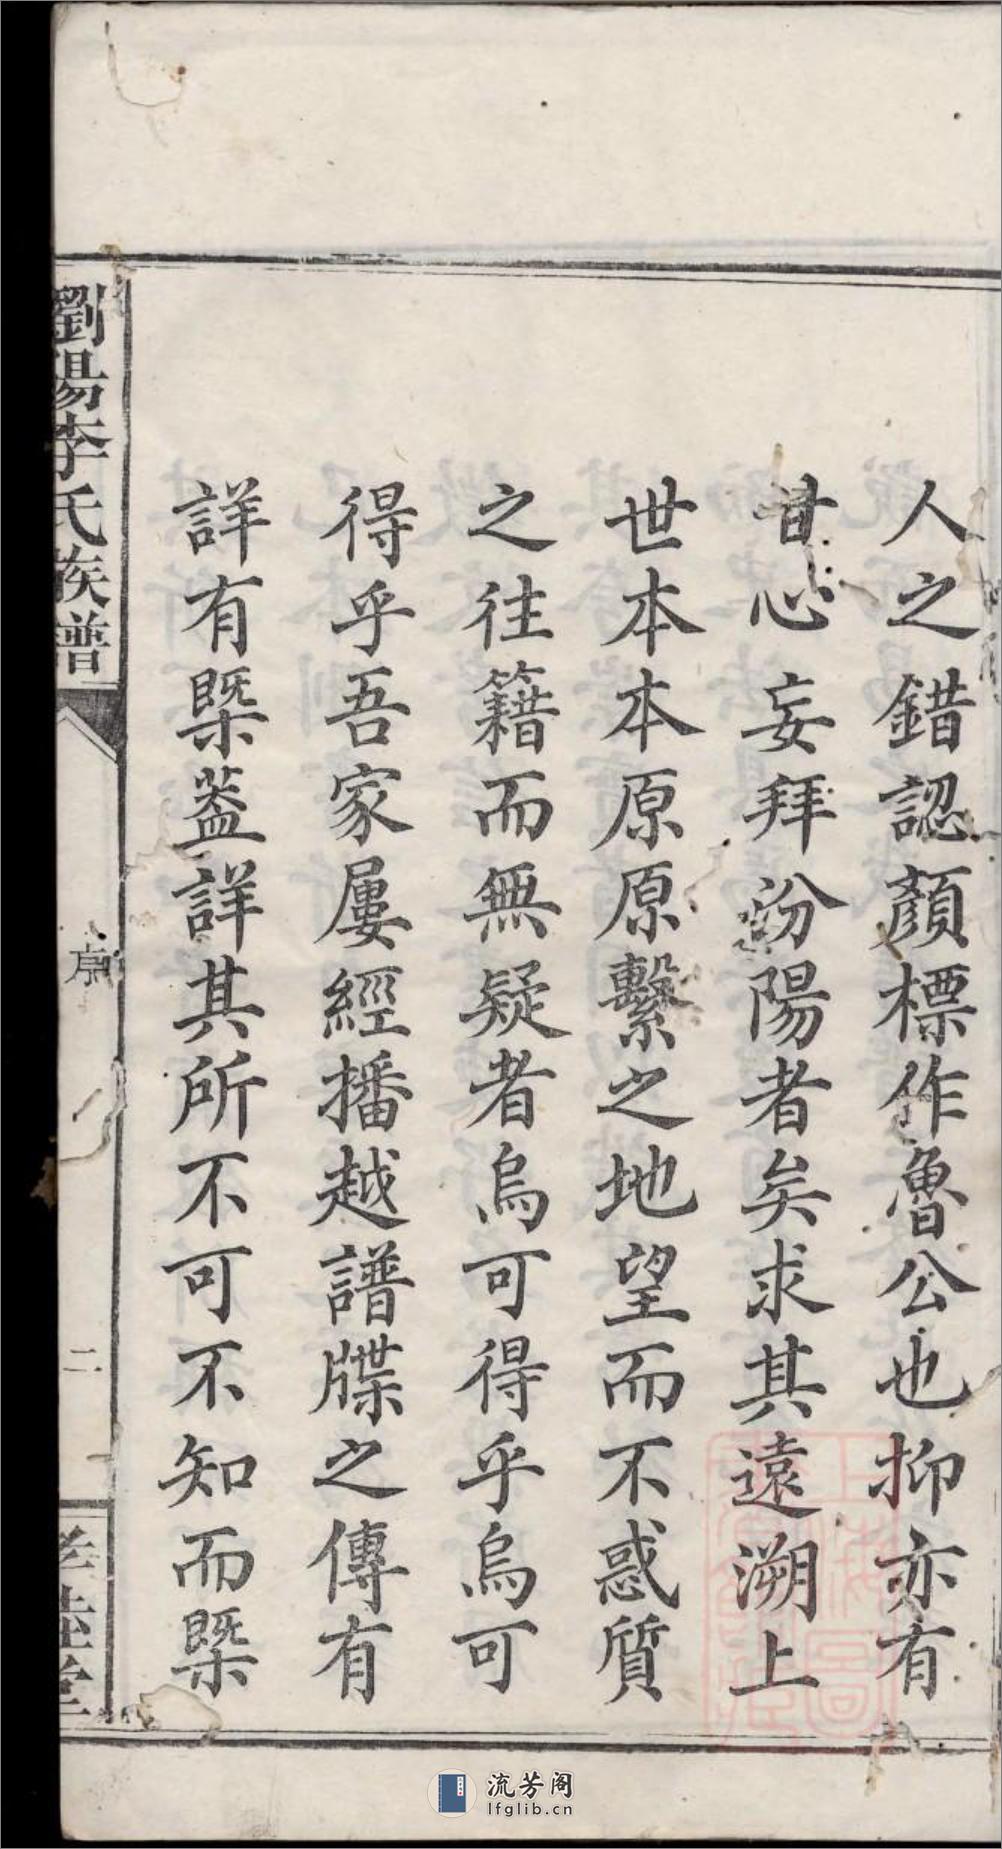 人之錯認顏標作魯公也抑亦有
甘心妄拜汾陽者矣求其遠溯上
世本本原原繫之地望而不惑質
之往籍而無疑者烏可得乎烏可
得乎吾家屢經播越譜牒之傳有
詳有槩葢詳其所不可不知而槩
瀏陽李氏族譜
二
堂
流芳阁
lfglib.cn